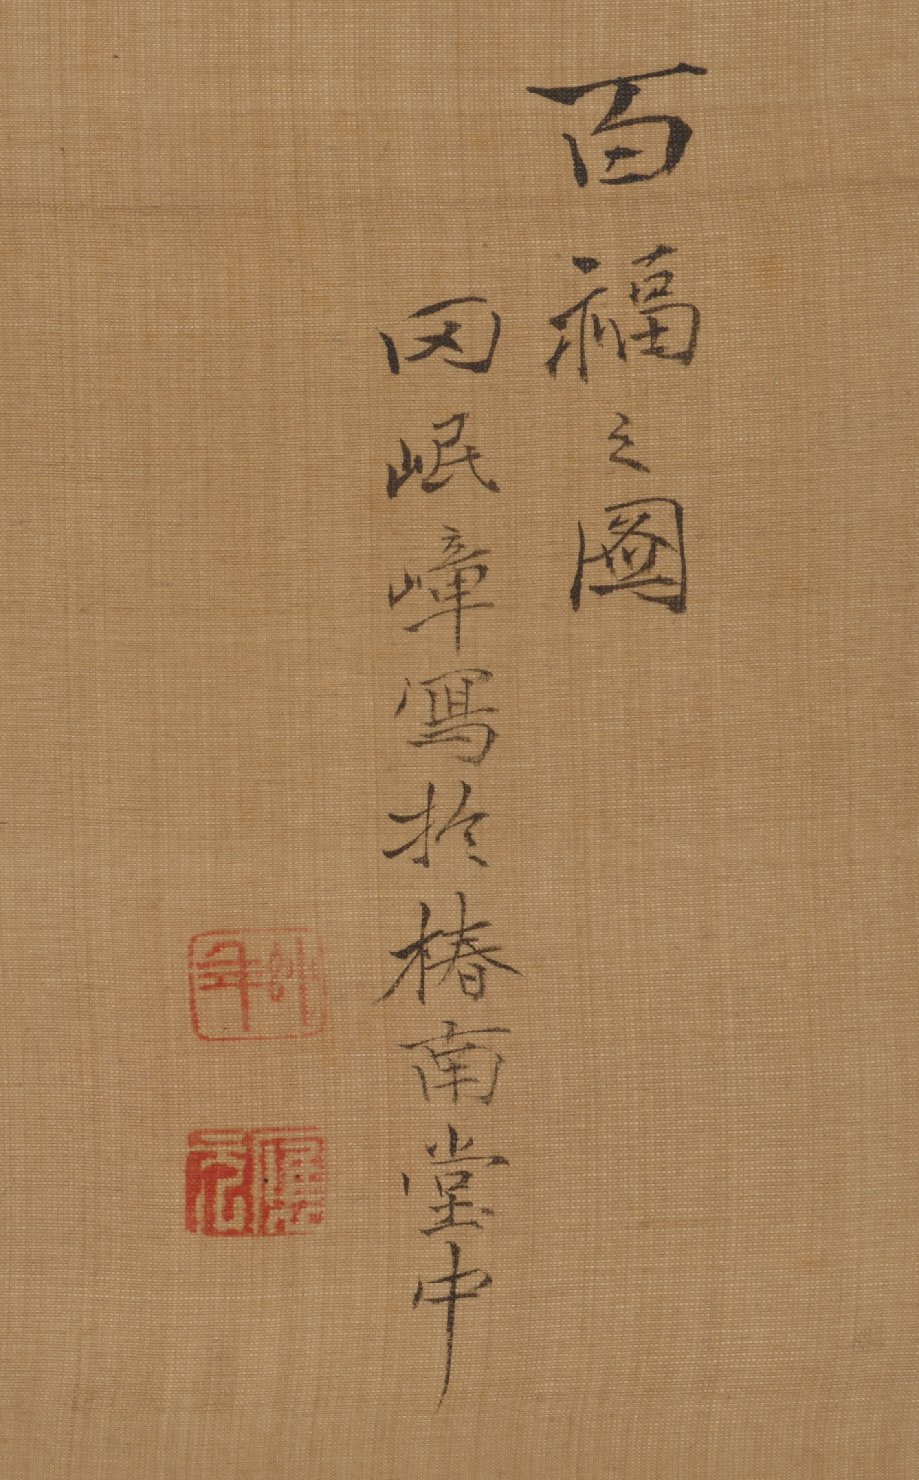 百福之圖
田岷嶂寫於椿南堂中